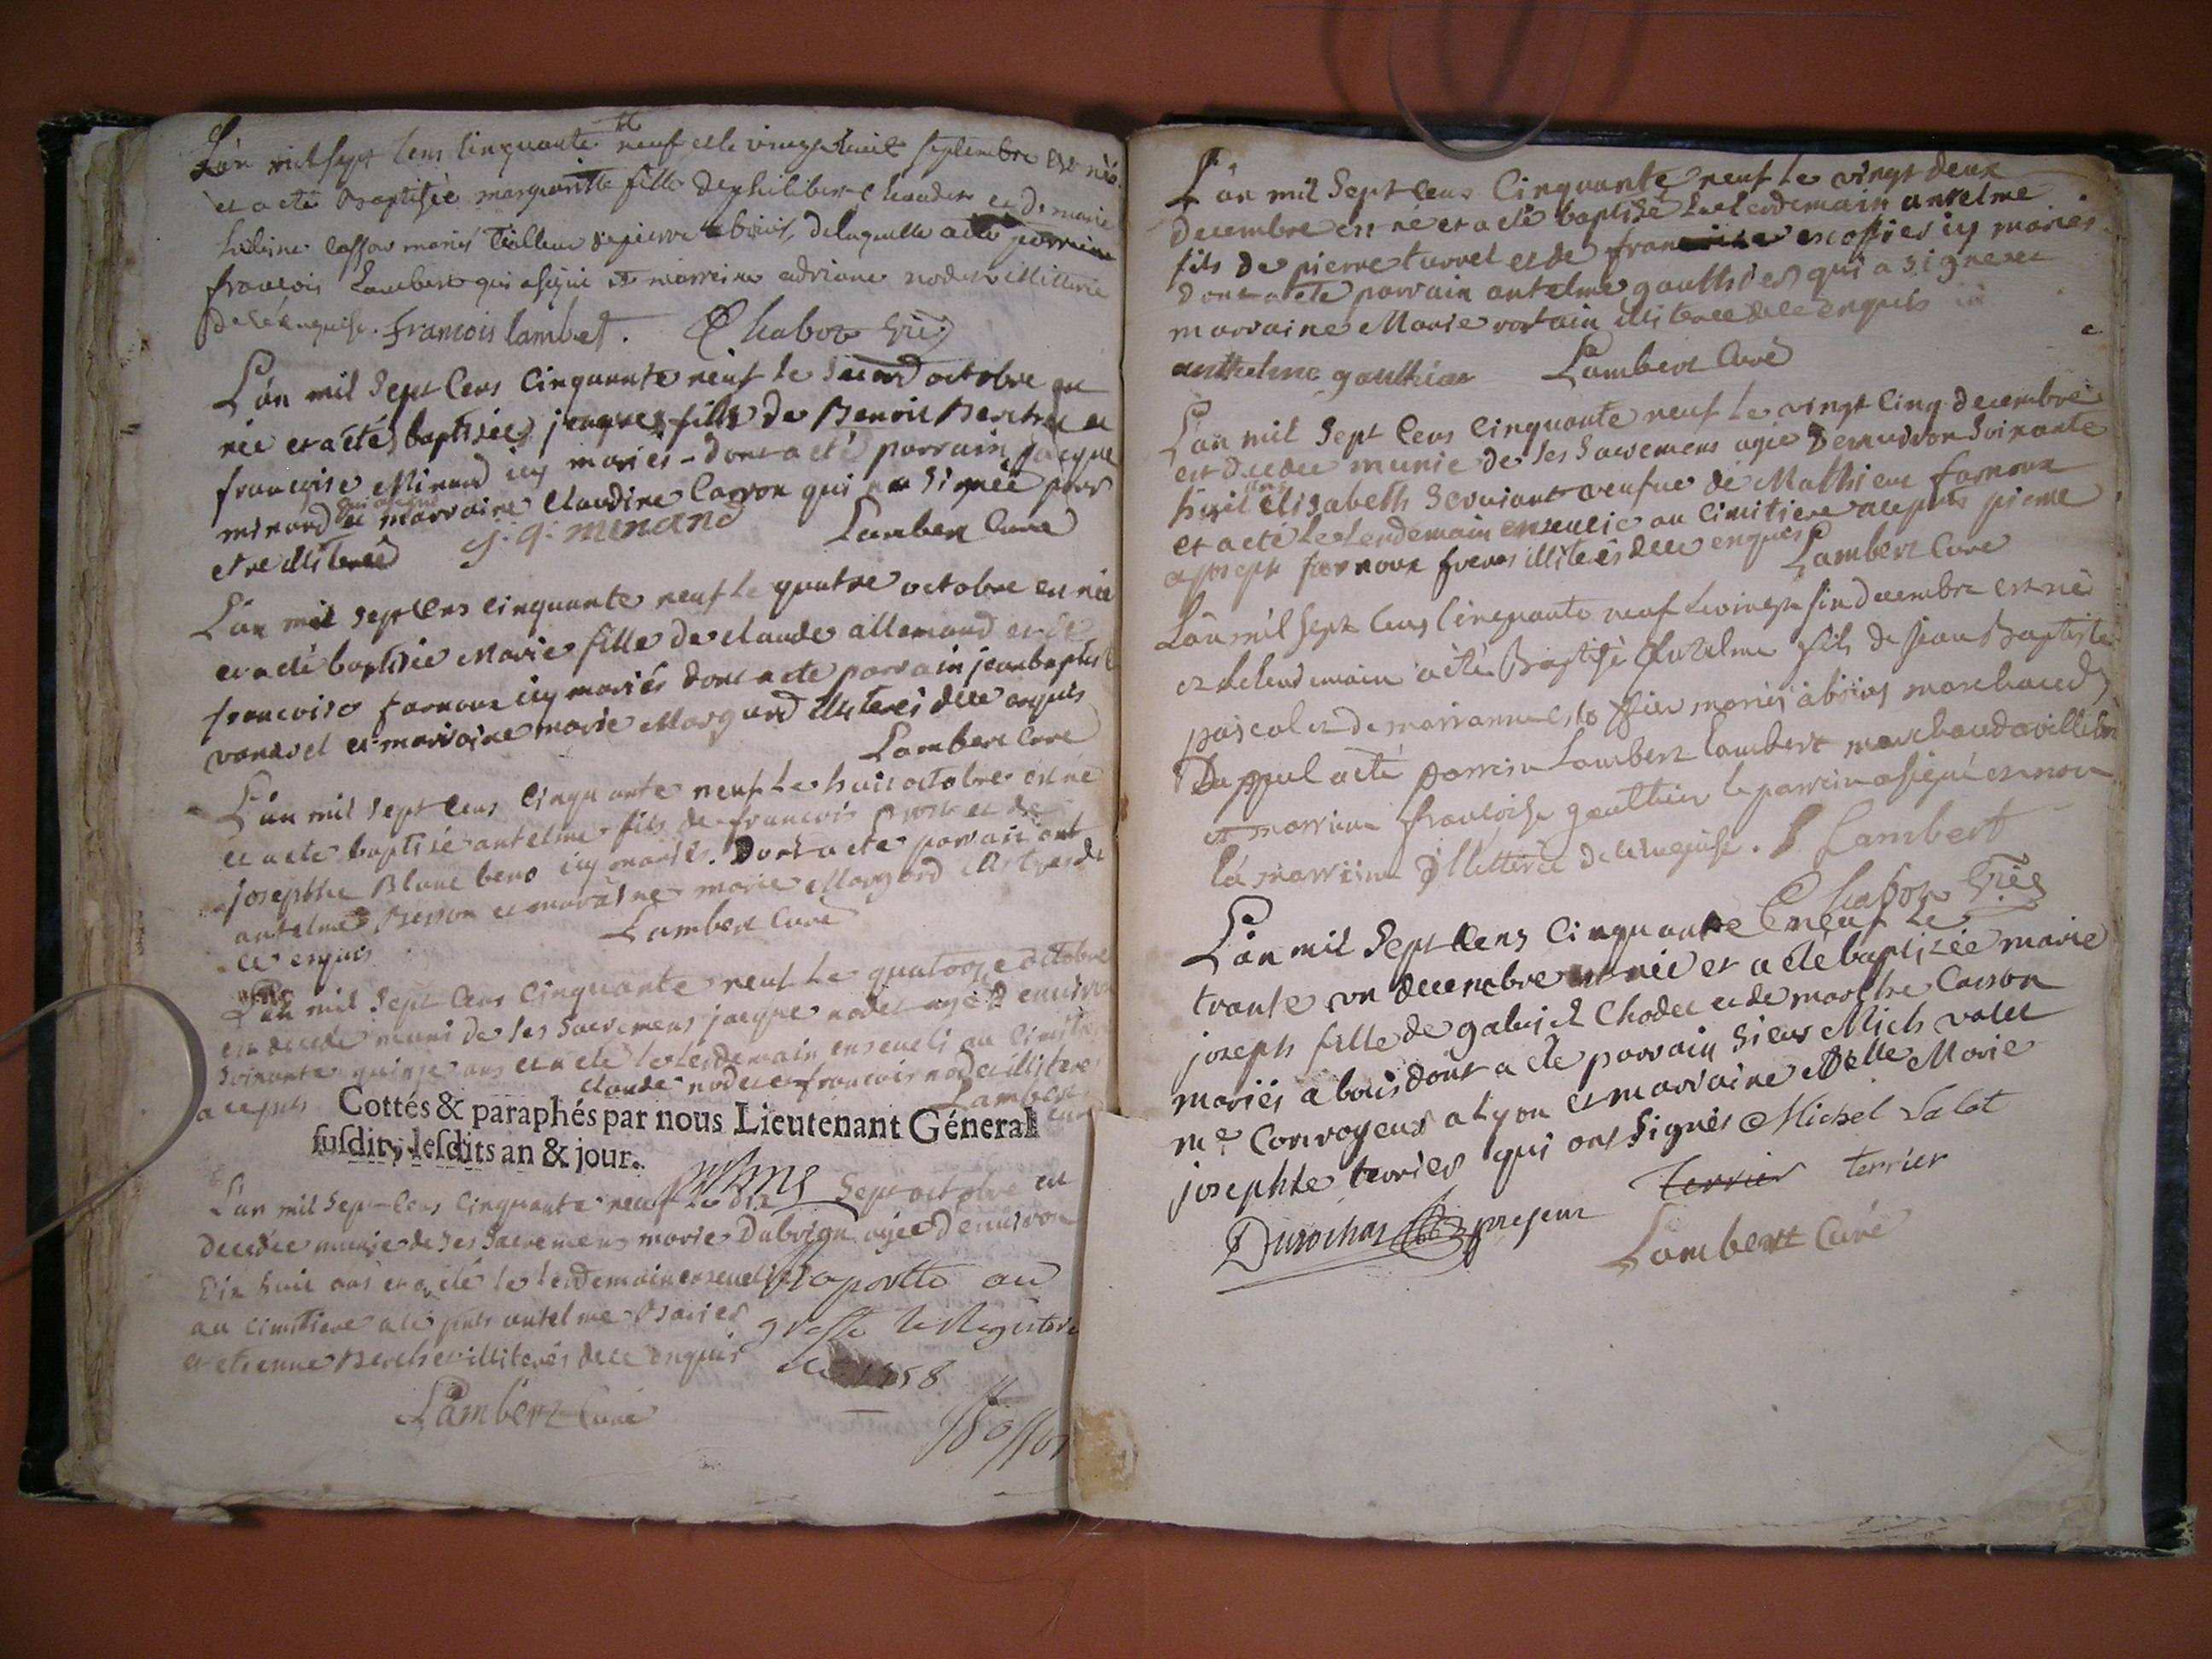 L'an mil sept cens cinquante neuf et le vingt huit septembre est née
et a eté baptisée margueritte fille de philibert chaudet et de marie
cassou mariés tailleur de pierre a briord, de laquelle a eté parrain
francois Lambert qui a signé et marreine adriane nodet illiterée
de ce enquise. francois lambet. Chabot
L'an mil sept cens cinquante neuf le second octobre est
née et a été baptisée jacque fille de Benoit Berchet et
francoise Minard icy mariés dont a eté parrain jacque
minard qui a signé et marraine Claudine Casson qui n'a signée pour
etre illiterée j. q. minand Lambert Curé
L'an mil sept cens cinquante neuf le quatre octobre est née
et a eté baptisée Marie fille de claude allemand et de
francoise farnoux icy mariés dont a eté parrain jean baptiste
et marraine marie Margard illiterés de ce enquis
Lambert Curé
L'an mil sept cens cinquante neuf le huit octobre est né
et a eté baptisé antelme fils de francois et de
josephte Blanc icy mariés. Dont a eté parrain ant
antelme Besson et marraine marie Margard illiterés de
ce enquis Lambert Curé
L'an mil sept cens cinquante neuf le quatorze octobre
est decedé muni de ses sacremens jacque nodet agé d'environ
soixante quinze ans et a eté le lendemain enseveli au cimitiere
a ce pnts claude nodet et francois nodet illiterés
Lambert curé
Cottés & paraphés par nous Lieutenant Géneral
susdit, lesdits an & jour.
L'an mil sept cens cinquante neuf le dix sept octobre est
decedée munie de ses sacremens marie agée d'environ
dix huit ans et a eté le lendemain ensevelie
au cimitiere a ce pnts antelme
et etienne Berchet illiterés de ce enquis
Lambert Curé
Raportté au
greffe le Registre
de 1758
L'an mil sept cens cinquante neuf le vingt deux
decembre est né et a eté baptisé le lendemain antelme
fils de pierre turrel et de escoffier icy mariés
dont a eté parrain antelme gaulthier qui a signé et
marraine Marie illiterée de ce enquis
anthelme gauthier Lambert Curé
L'an mil sept cens cinquante neuf le vingt cinq decembre
est decedée munie de ses sacremens agée d'environ soixante
huit ans Elisabeth Servant veufve de Mathieu farnoux
et a eté le lendemain ensevelie au cimitiere a ce pnts pierre
et joseph farnoux freres illiterés de ce enquis Lambert Curé
L'an mil sept cens cinquante neuf le vingt six decembre est né
et le lendemain a été Baptisé Antelme fils de Jean Baptiste
pascal et de marianne escoffier mariés a briord marchand
Duquel a eté parrein Lambert Lambert marchand a villebois
et marreine francoise gaulthier le parrein a signé et non
la marreine illitterée de ce enquise. L Lambert
Chabot
L'an mil sept cens cinquante neuf le
trante un decembre est née et a eté baptisée marie
joseph fille de gabriel Chodet et de marthe Casson
mariés a bois dont a eté parrain sieur Mich valet
me Convoyeur a Lyon et marraine Delle Marie
josephte terrier qui ont signés Michel Valot
Durochat present terrier
Lambert Curé